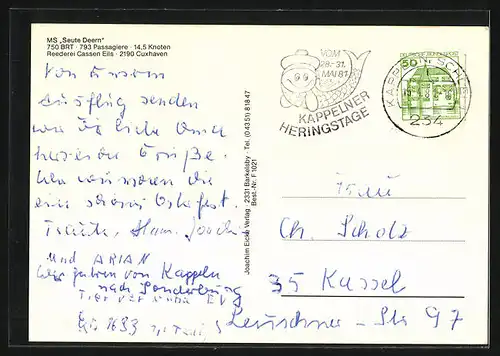 MS „Seute Deern"
750 BRT · 793 Passagiere · 14,5 Knoten
Reederei Cassen Eils · 2190 Cuxhaven
Von unserm
Ausflug senden
wir Dir liebe
herzliche Grüße.
Wir wünschen Dir
ein schönes Osterfest.
Hans Joachim
und ARIAN
Wir fahren von Kappeln
nach Sonderburg
VOM
28.-31.
MAI 81
KAPPELNER
HERINGSTAGE
KAPPELN, SCHLEI
234
50
DEUTSCHE BUNDESPOST
Joachim Eicke Verlag · 2331 Barkelsby · Tel. (04351) 81847
Best.-Nr. F 1021
Frau
Ch. Scholz
35 Kassel
Leuschner-Str 97